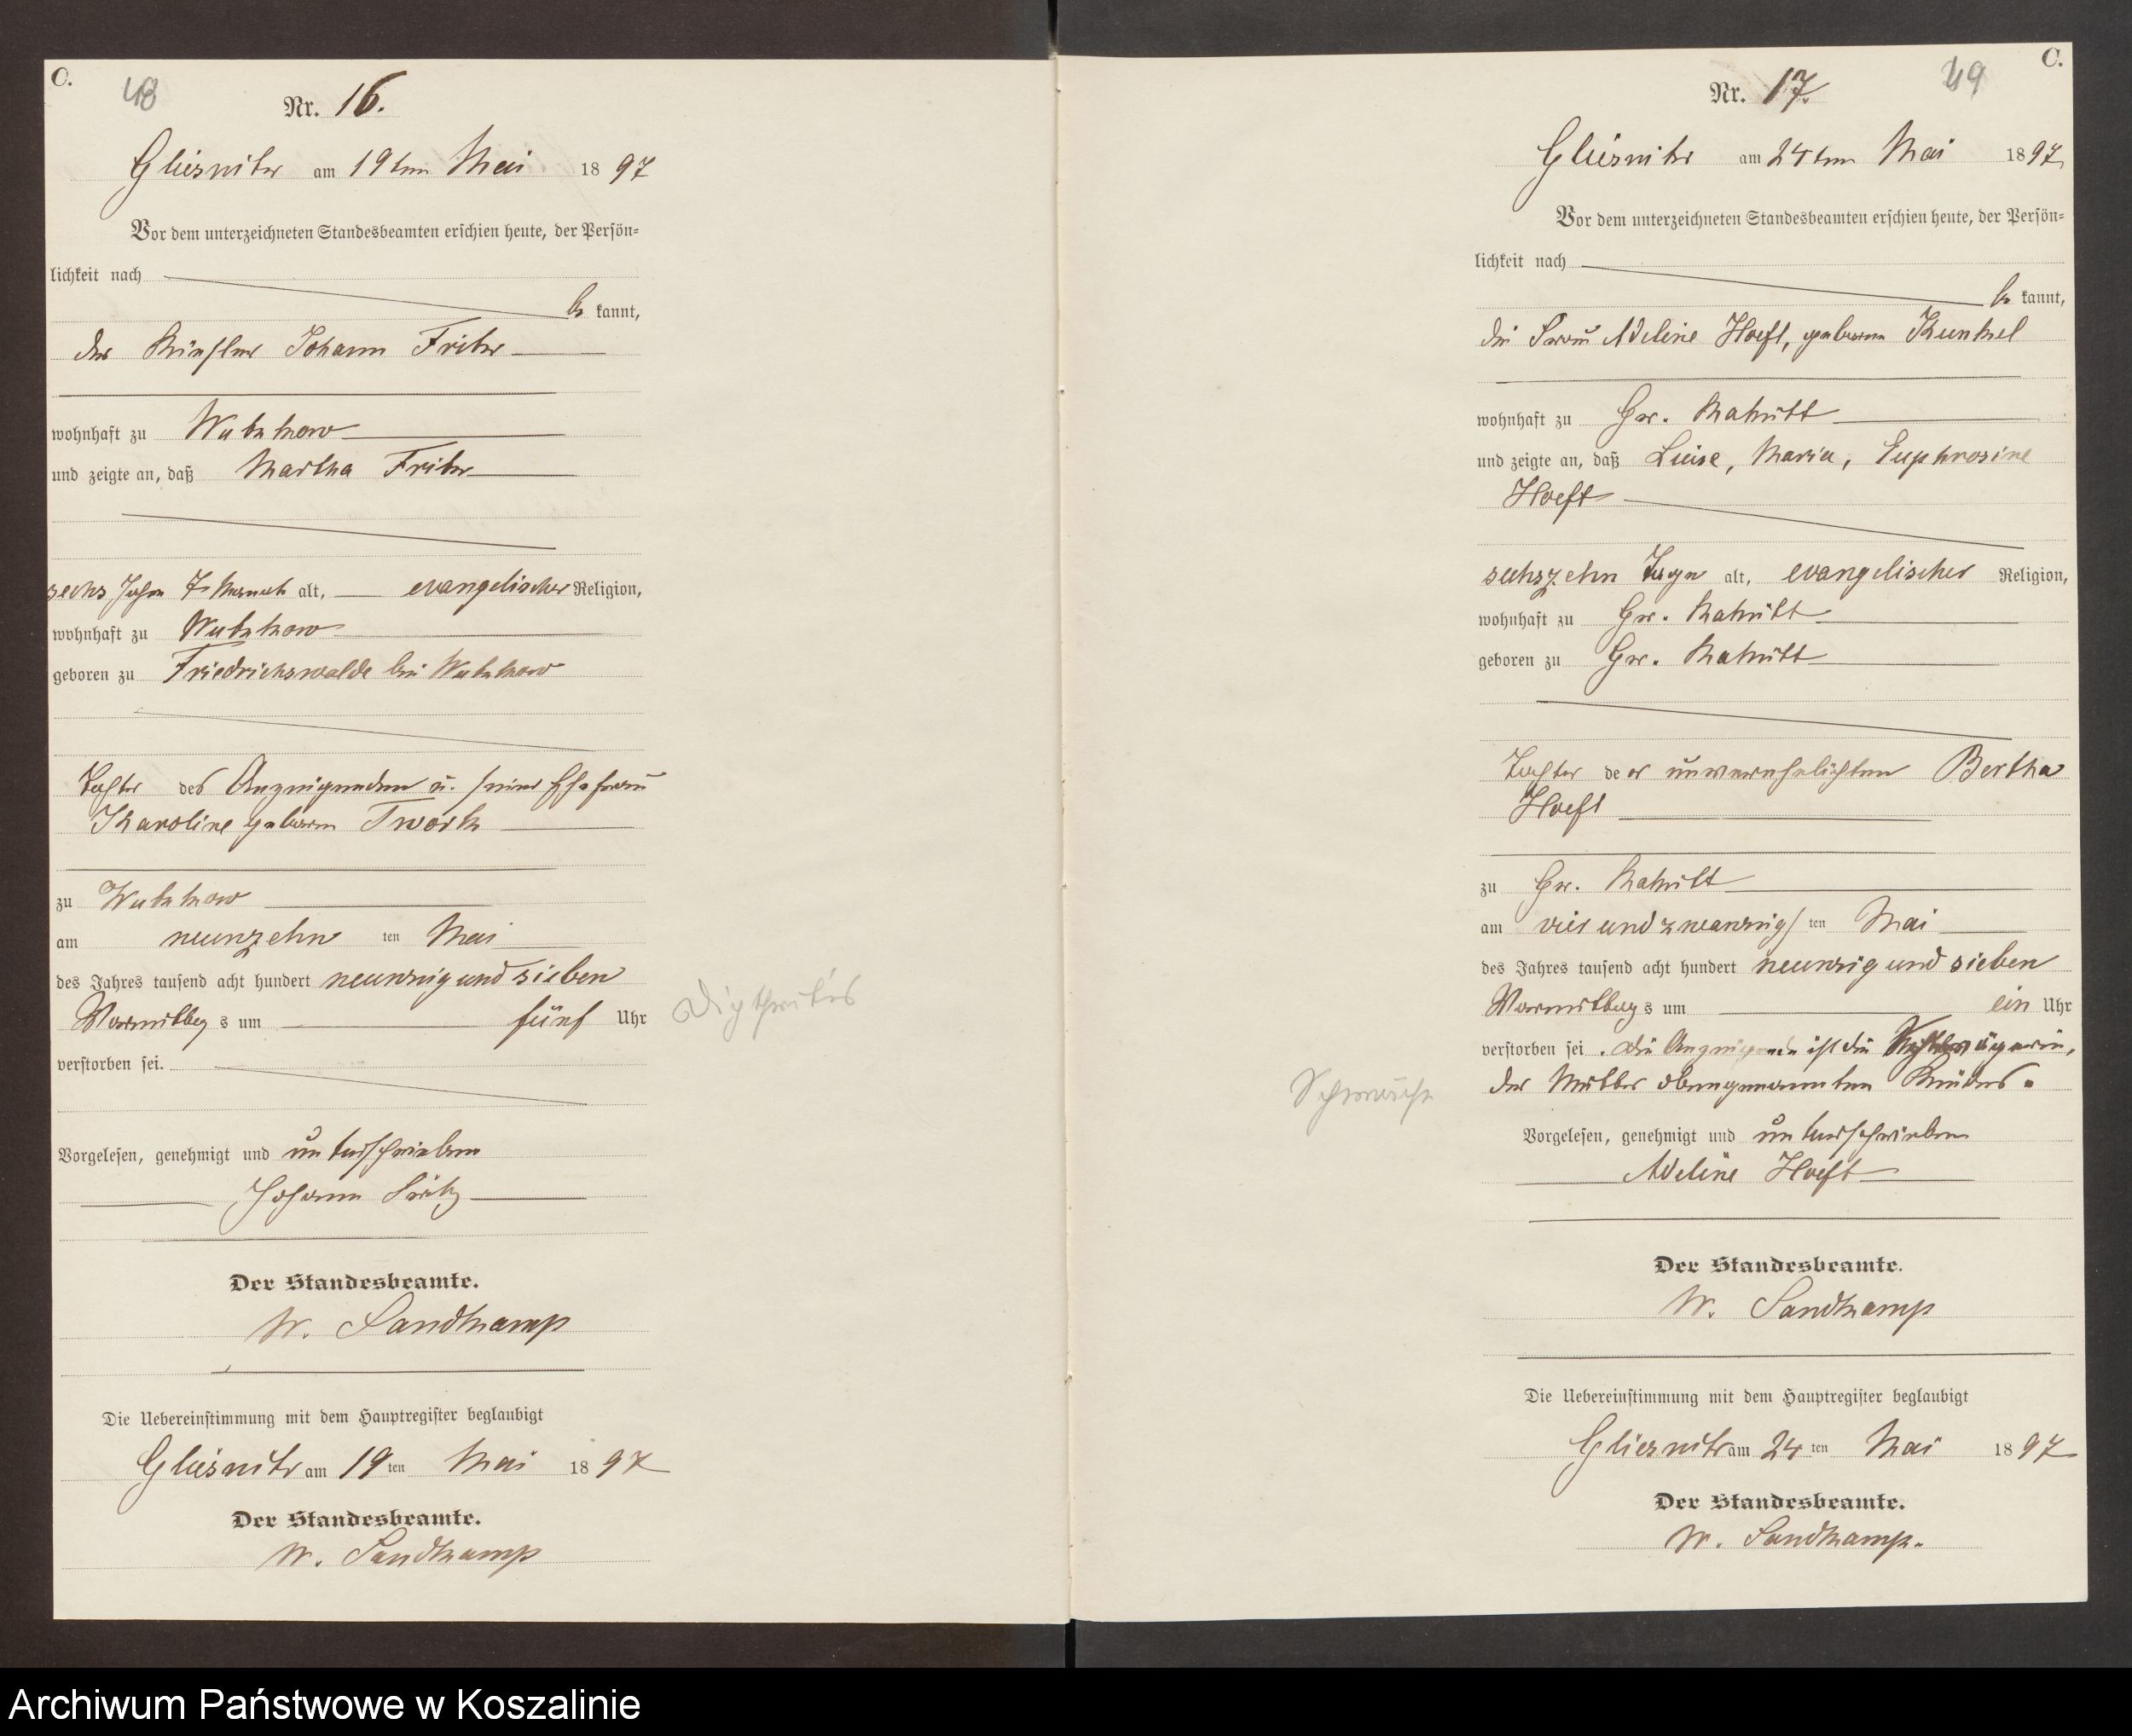 C.
48
Nr. 16.
Gliesnitz am 19ten Mai 1897
Vor dem unterzeichneten Standesbeamten erschien heute, der Persön-
lichkeit nach
be kannt,
der Johann Fritze
wohnhaft zu Wutzkow
und zeigte an, daß Martha Fritze
sechs Jahre 7 Monate alt, evangelischer Religion,
wohnhaft zu Wutzkow
geboren zu Friedrichswalde bei Wutzkow
Tochter des Anzeigenden u. seiner Ehefrau
Karoline geborene Twork
zu Wutzkow
am neunzehn ten Mai
des Jahres tausend acht hundert neunzig und sieben
Vormittag s um fünf Uhr
verstorben sei.
Vorgelesen, genehmigt und unterschrieben
Johann
Der Standesbeamte.
W. Sandkamp
Die Uebereinstimmung mit dem Hauptregister beglaubigt
Gliesnitz am 19 ten Mai 1897
Der Standesbeamte.
W. Sandkamp
Digthritis
C.
49
Nr. 17.
Gliesnitz am 24ten Mai 1897
Vor dem unterzeichneten Standesbeamten erschien heute, der Persön-
lichkeit nach
be kannt,
die Frau Adeline Hoeft, geborene Kunkel
wohnhaft zu Gr. Massowitz
und zeigte an, daß Luise, Maria, Euphrosine
Hoeft
sechszehn Tage alt, evangelischer Religion,
wohnhaft zu Gr.
geboren zu Gr.
Tochter de er unverehelichten Bertha
Hoeft
zu Gr.
am vier und zwanzigs ten Mai
des Jahres tausend acht hundert neunzig und sieben
Vormittag s um ein Uhr
verstorben sei. Die Anzeigende ist die Schwägerin,
der Mutter obengenannten Kindes.
Schwäche
Vorgelesen, genehmigt und unterschrieben
Adeline Hoeft
Der Standesbeamte.
W. Sandkamp
Die Uebereinstimmung mit dem Hauptregister beglaubigt
Gliesnitz am 24 ten Mai 1897
Der Standesbeamte.
W. Sandkamp.
Archiwum Państwowe w Koszalinie